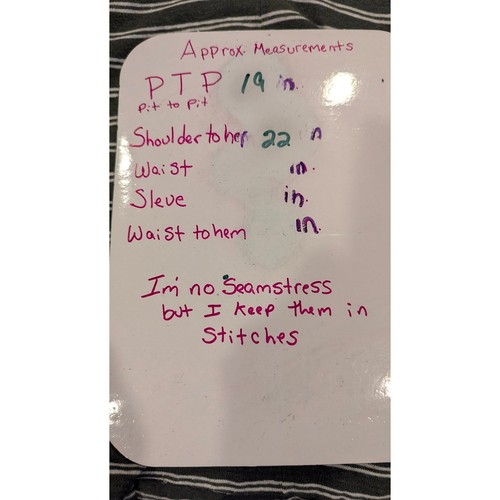 Approx. Measurements
PTP 19 in.
Pit to Pit
Shoulder to hem 22 in
Waist in.
Sleve in.
Waist to hem in.
Im no Seamstress
but I keep them in
Stitches